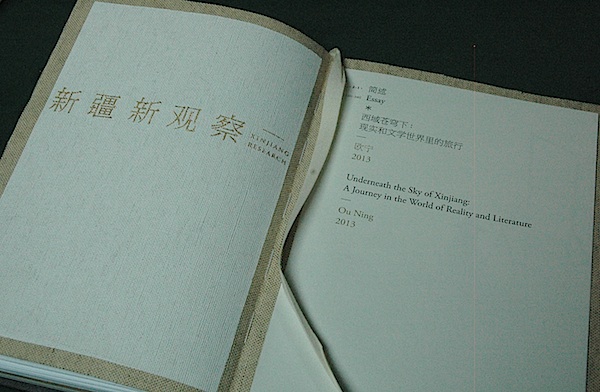 新疆新观察
XINJIANG
RESEARCH
简述
Essay
西域苍穹下：
现实和文学世界里的旅行
欧宁
2013
Underneath the Sky of Xinjiang:
A Journey in the World of Reality and Literature
Ou Ning
2013